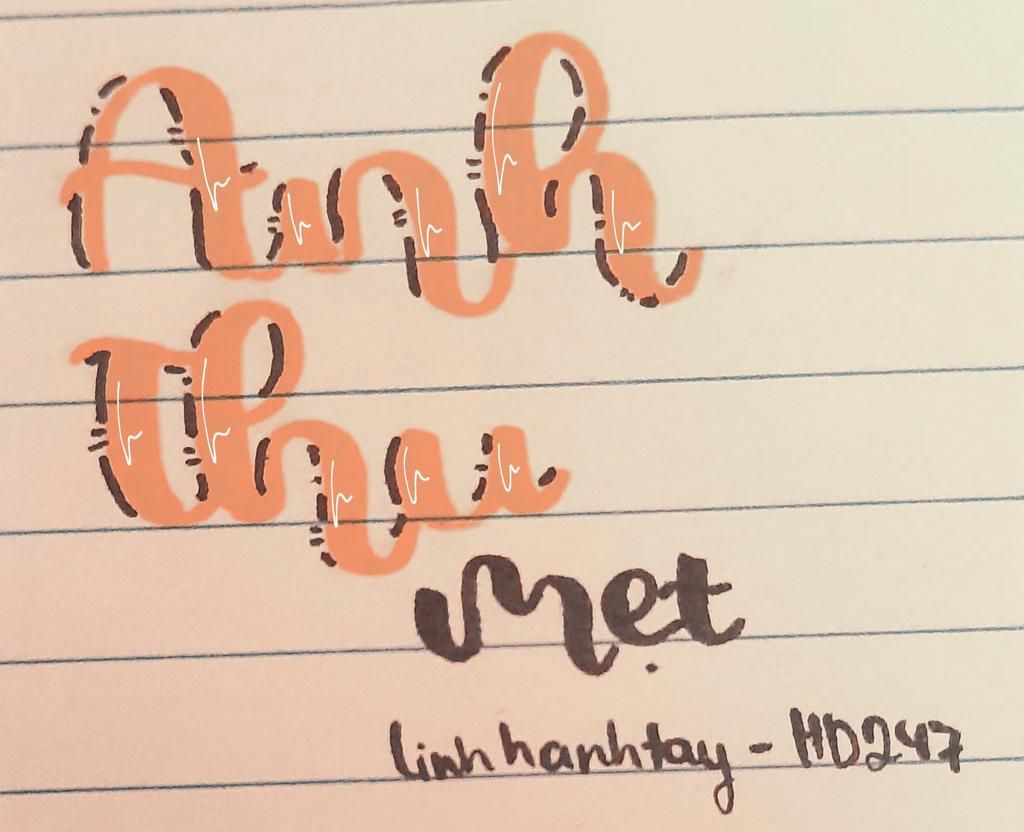 Anh
Thu
Mẹt
linhhanhtay - HD247